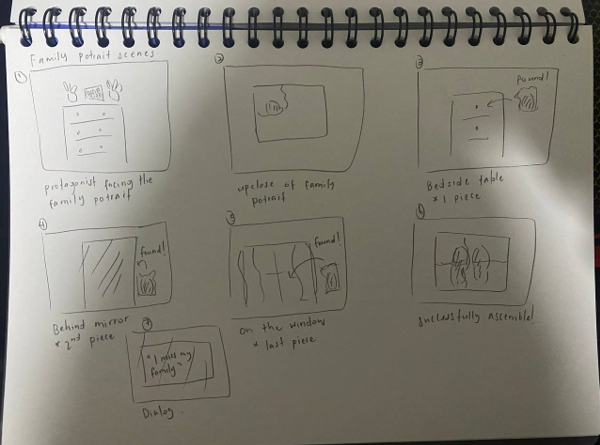 Family potrait scenes
1
protagonist facing the
family potrait
2
upclose of family
potrait
3
found!
Bedside table
* 1 piece.
4
found!
Behind mirror
* 2nd piece
5
found!
on the window
* last piece
6
successfully assemble!
7
"I miss my
family"
Dialog.